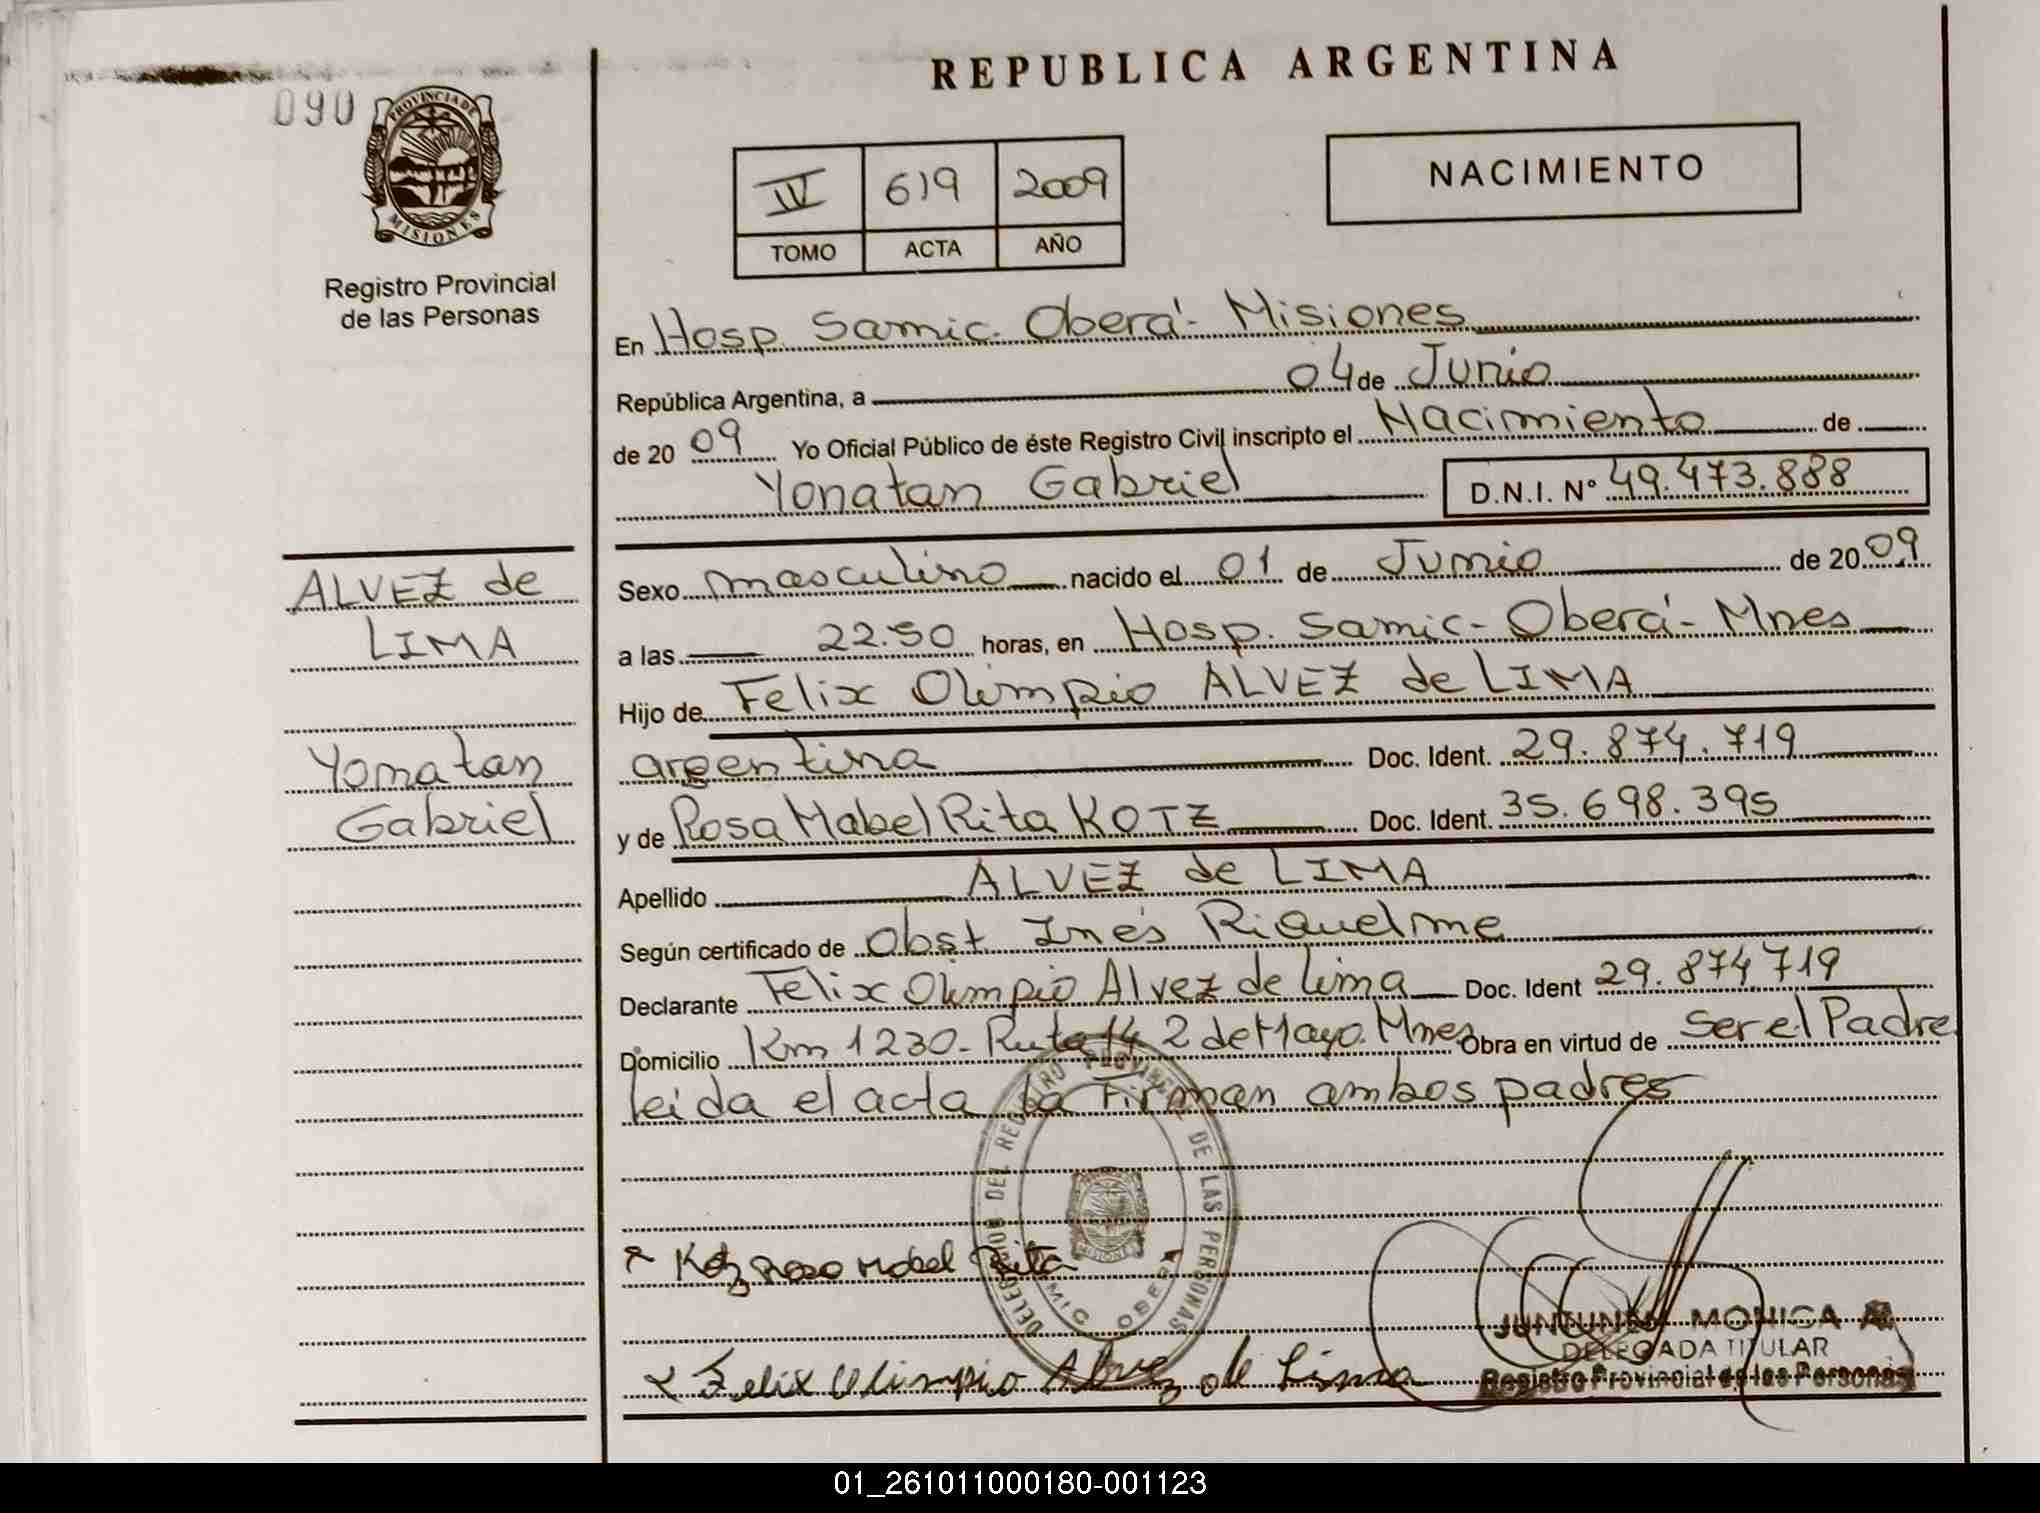 REPUBLICA ARGENTINA
090
PROVINCIA DE
MISIONES
Registro Provincial
de las Personas
IV 619 2009
TOMO ACTA AÑO
NACIMIENTO
En Hosp. Samic. Oberá - Misiones
República Argentina, a 04 de Junio
de 20 09 Yo Oficial Público de éste Registro Civil inscripto el Nacimiento de
Yonatan Gabriel D.N.I. Nº 49.473.888
ALVEZ de
LIMA
Yonatan
Gabriel
Sexo masculino nacido el 01 de Junio de 20 09
a las 22.50 horas, en Hosp. Samic - Oberá - Mnes
Hijo de Felix Olimpio ALVEZ de LIMA
argentina Doc. Ident. 29.874.719
y de Rosa Mabel Rita KOTZ Doc. Ident. 35.698.395
Apellido ALVEZ de LIMA
Según certificado de Obst Inés Riquelme
Declarante Felix Olimpio Alvez de Lima Doc. Ident 29.874.719
Domicilio Km 1230 - Ruta 14 2 de Mayo. Mnes Obra en virtud de Ser el Padre
leida el acta la Firman ambos padres
DELEGADOS DEL REGISTRO PROVINCIAL DE LAS PERSONAS
MISIONES
OBERA
Kotz Rosa Mabel Rita
Felix Olimpio Alvez de Lima
MONICA
DELEGADA TITULAR
Registro Provincial de las Personas
01_261011000180-001123